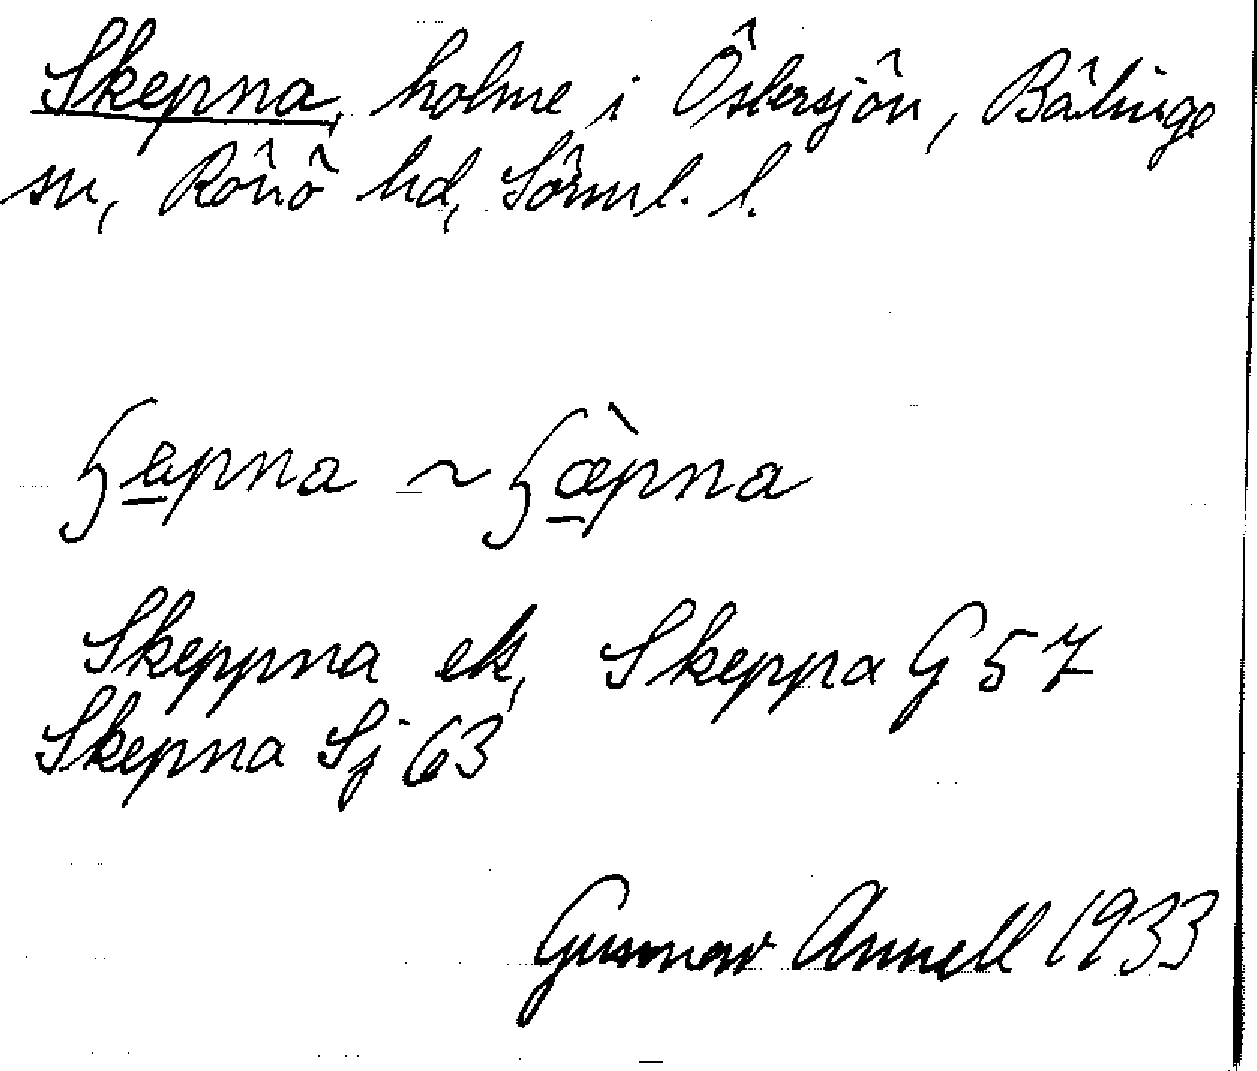 Skepna, holme i Östersjön, Bälinge
sn, Rönö hd, Sörml. l.
ʃa̲pna ~ ʃæ̲̀pna
Skeppna ek, Skeppa G 57
Skepna Sj 63
Gunnar Annell 1933